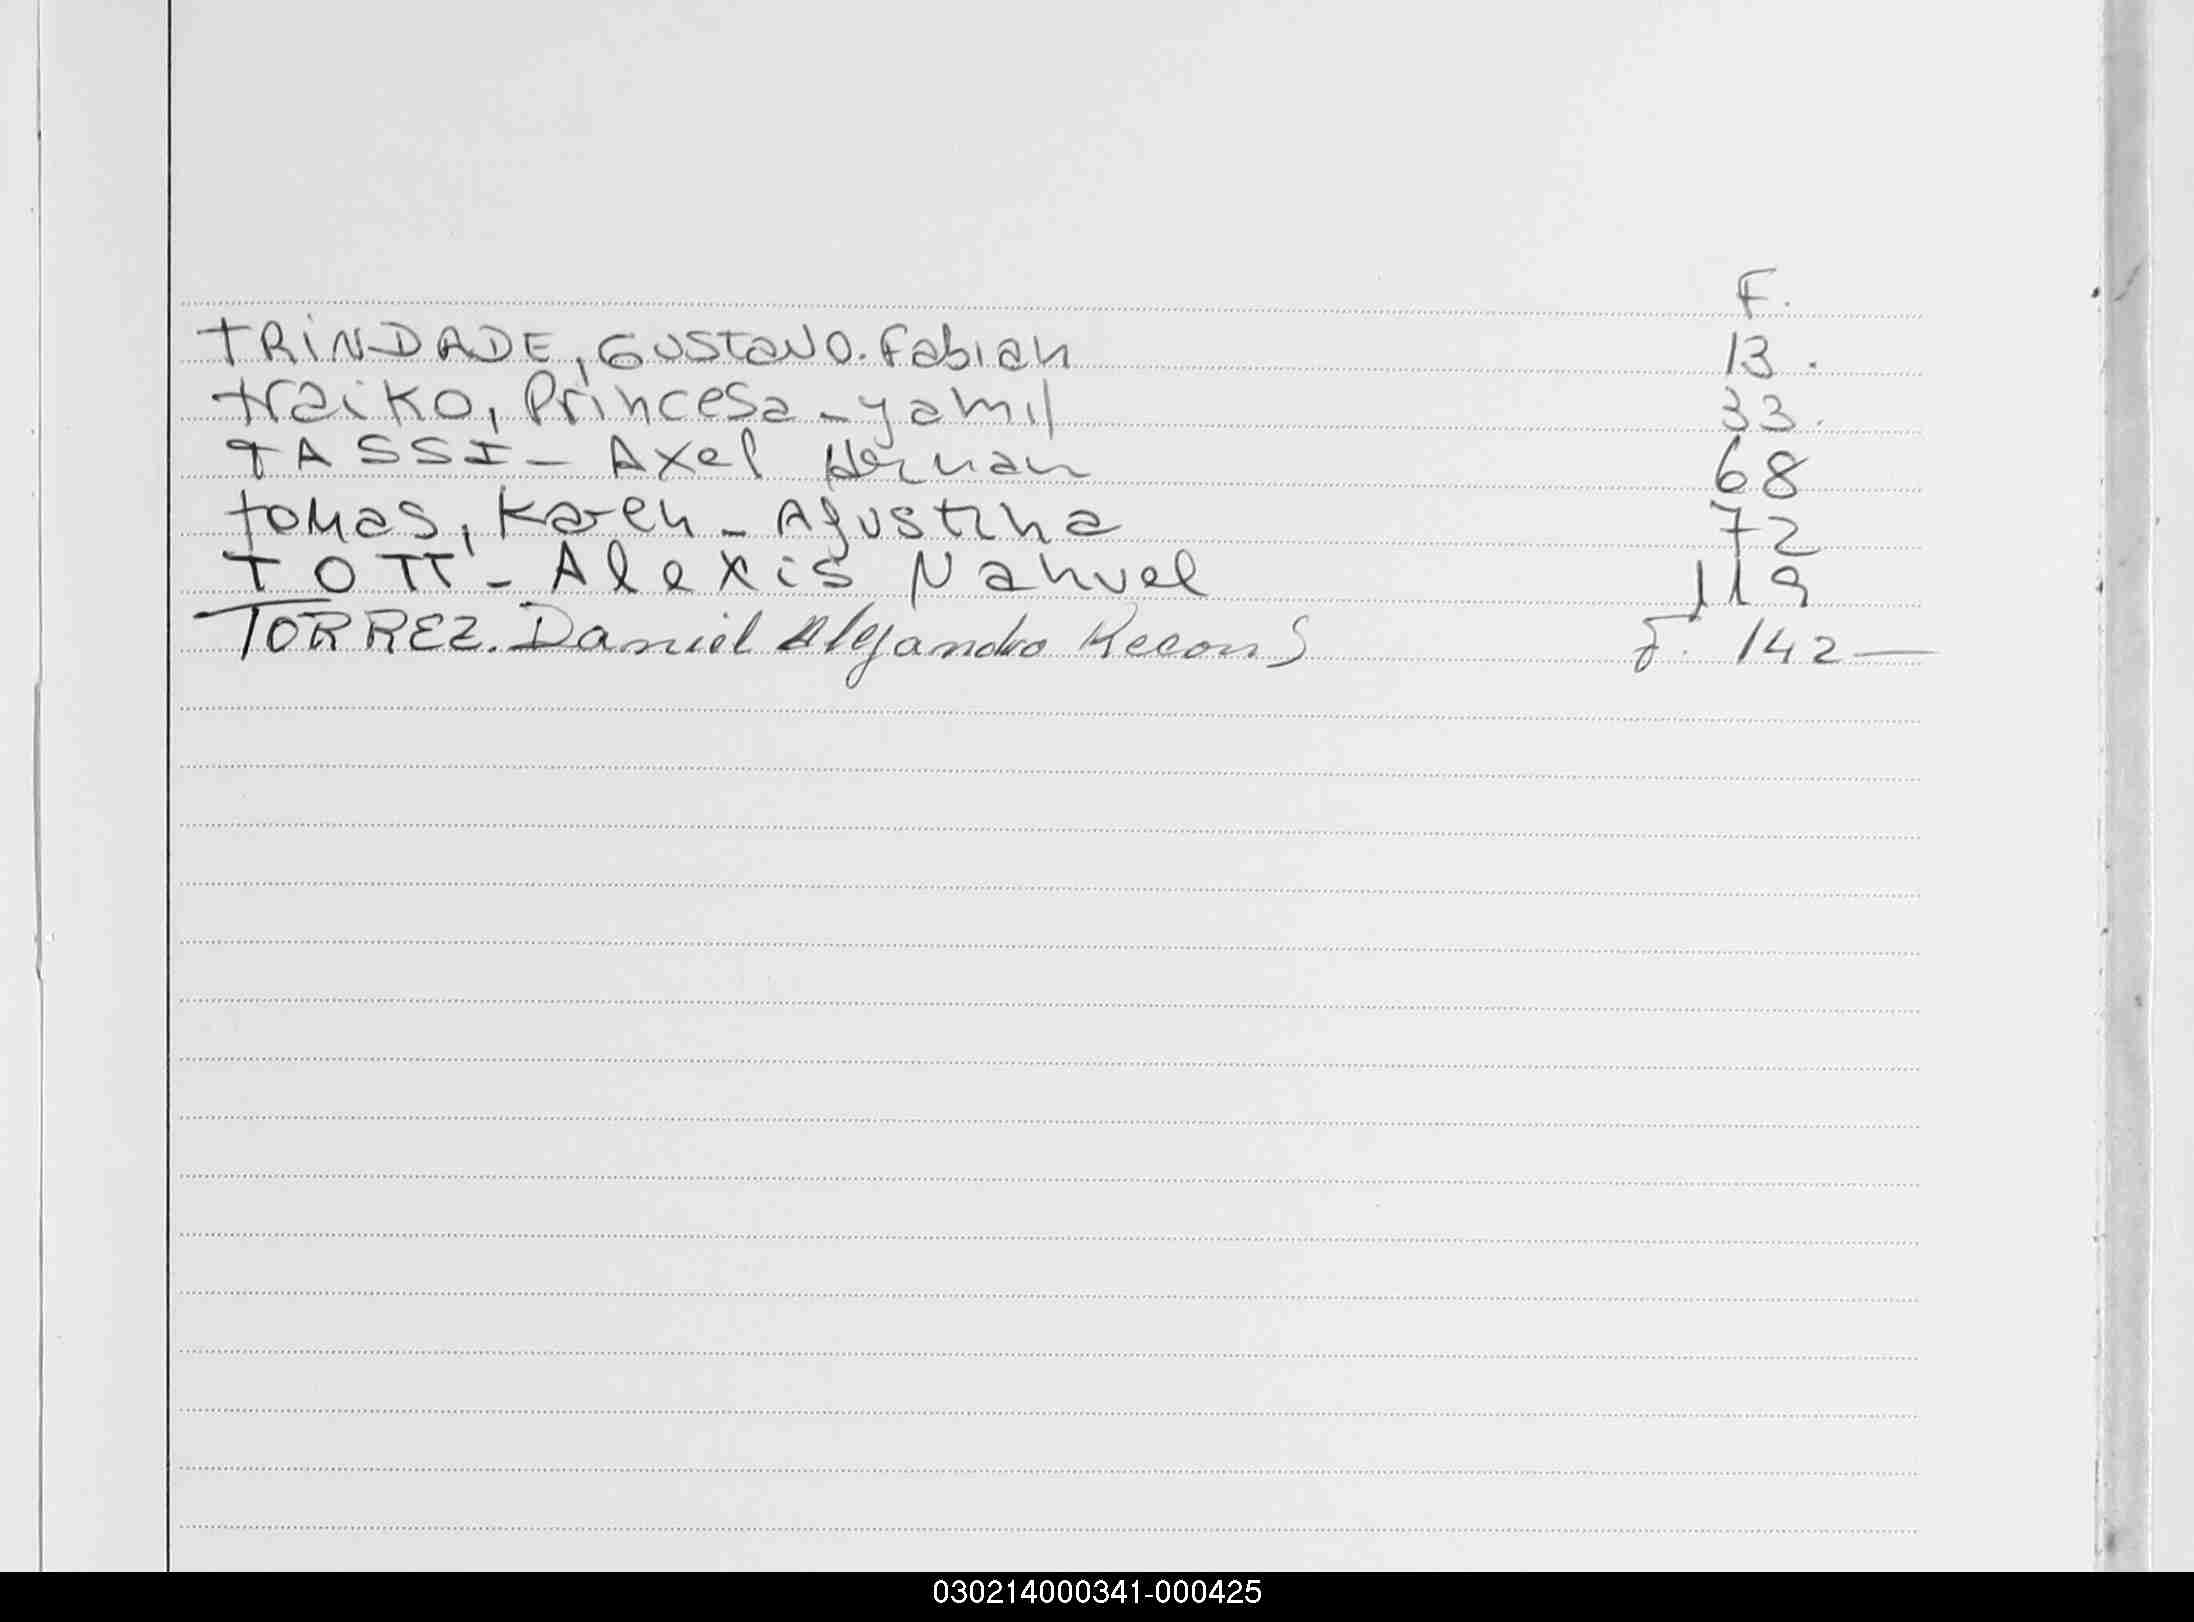 F.
TRiNDADE, GUSTavO. Fabian 13.
traiko, Princesa - yamil 33.
TASSI - Axel Hernan 68
tomas, Karen - Agustina 72
TOTT - Alexis Nahuel 119
TORREZ. Daniel Alejandro Recon S F. 142 —
030214000341-000425